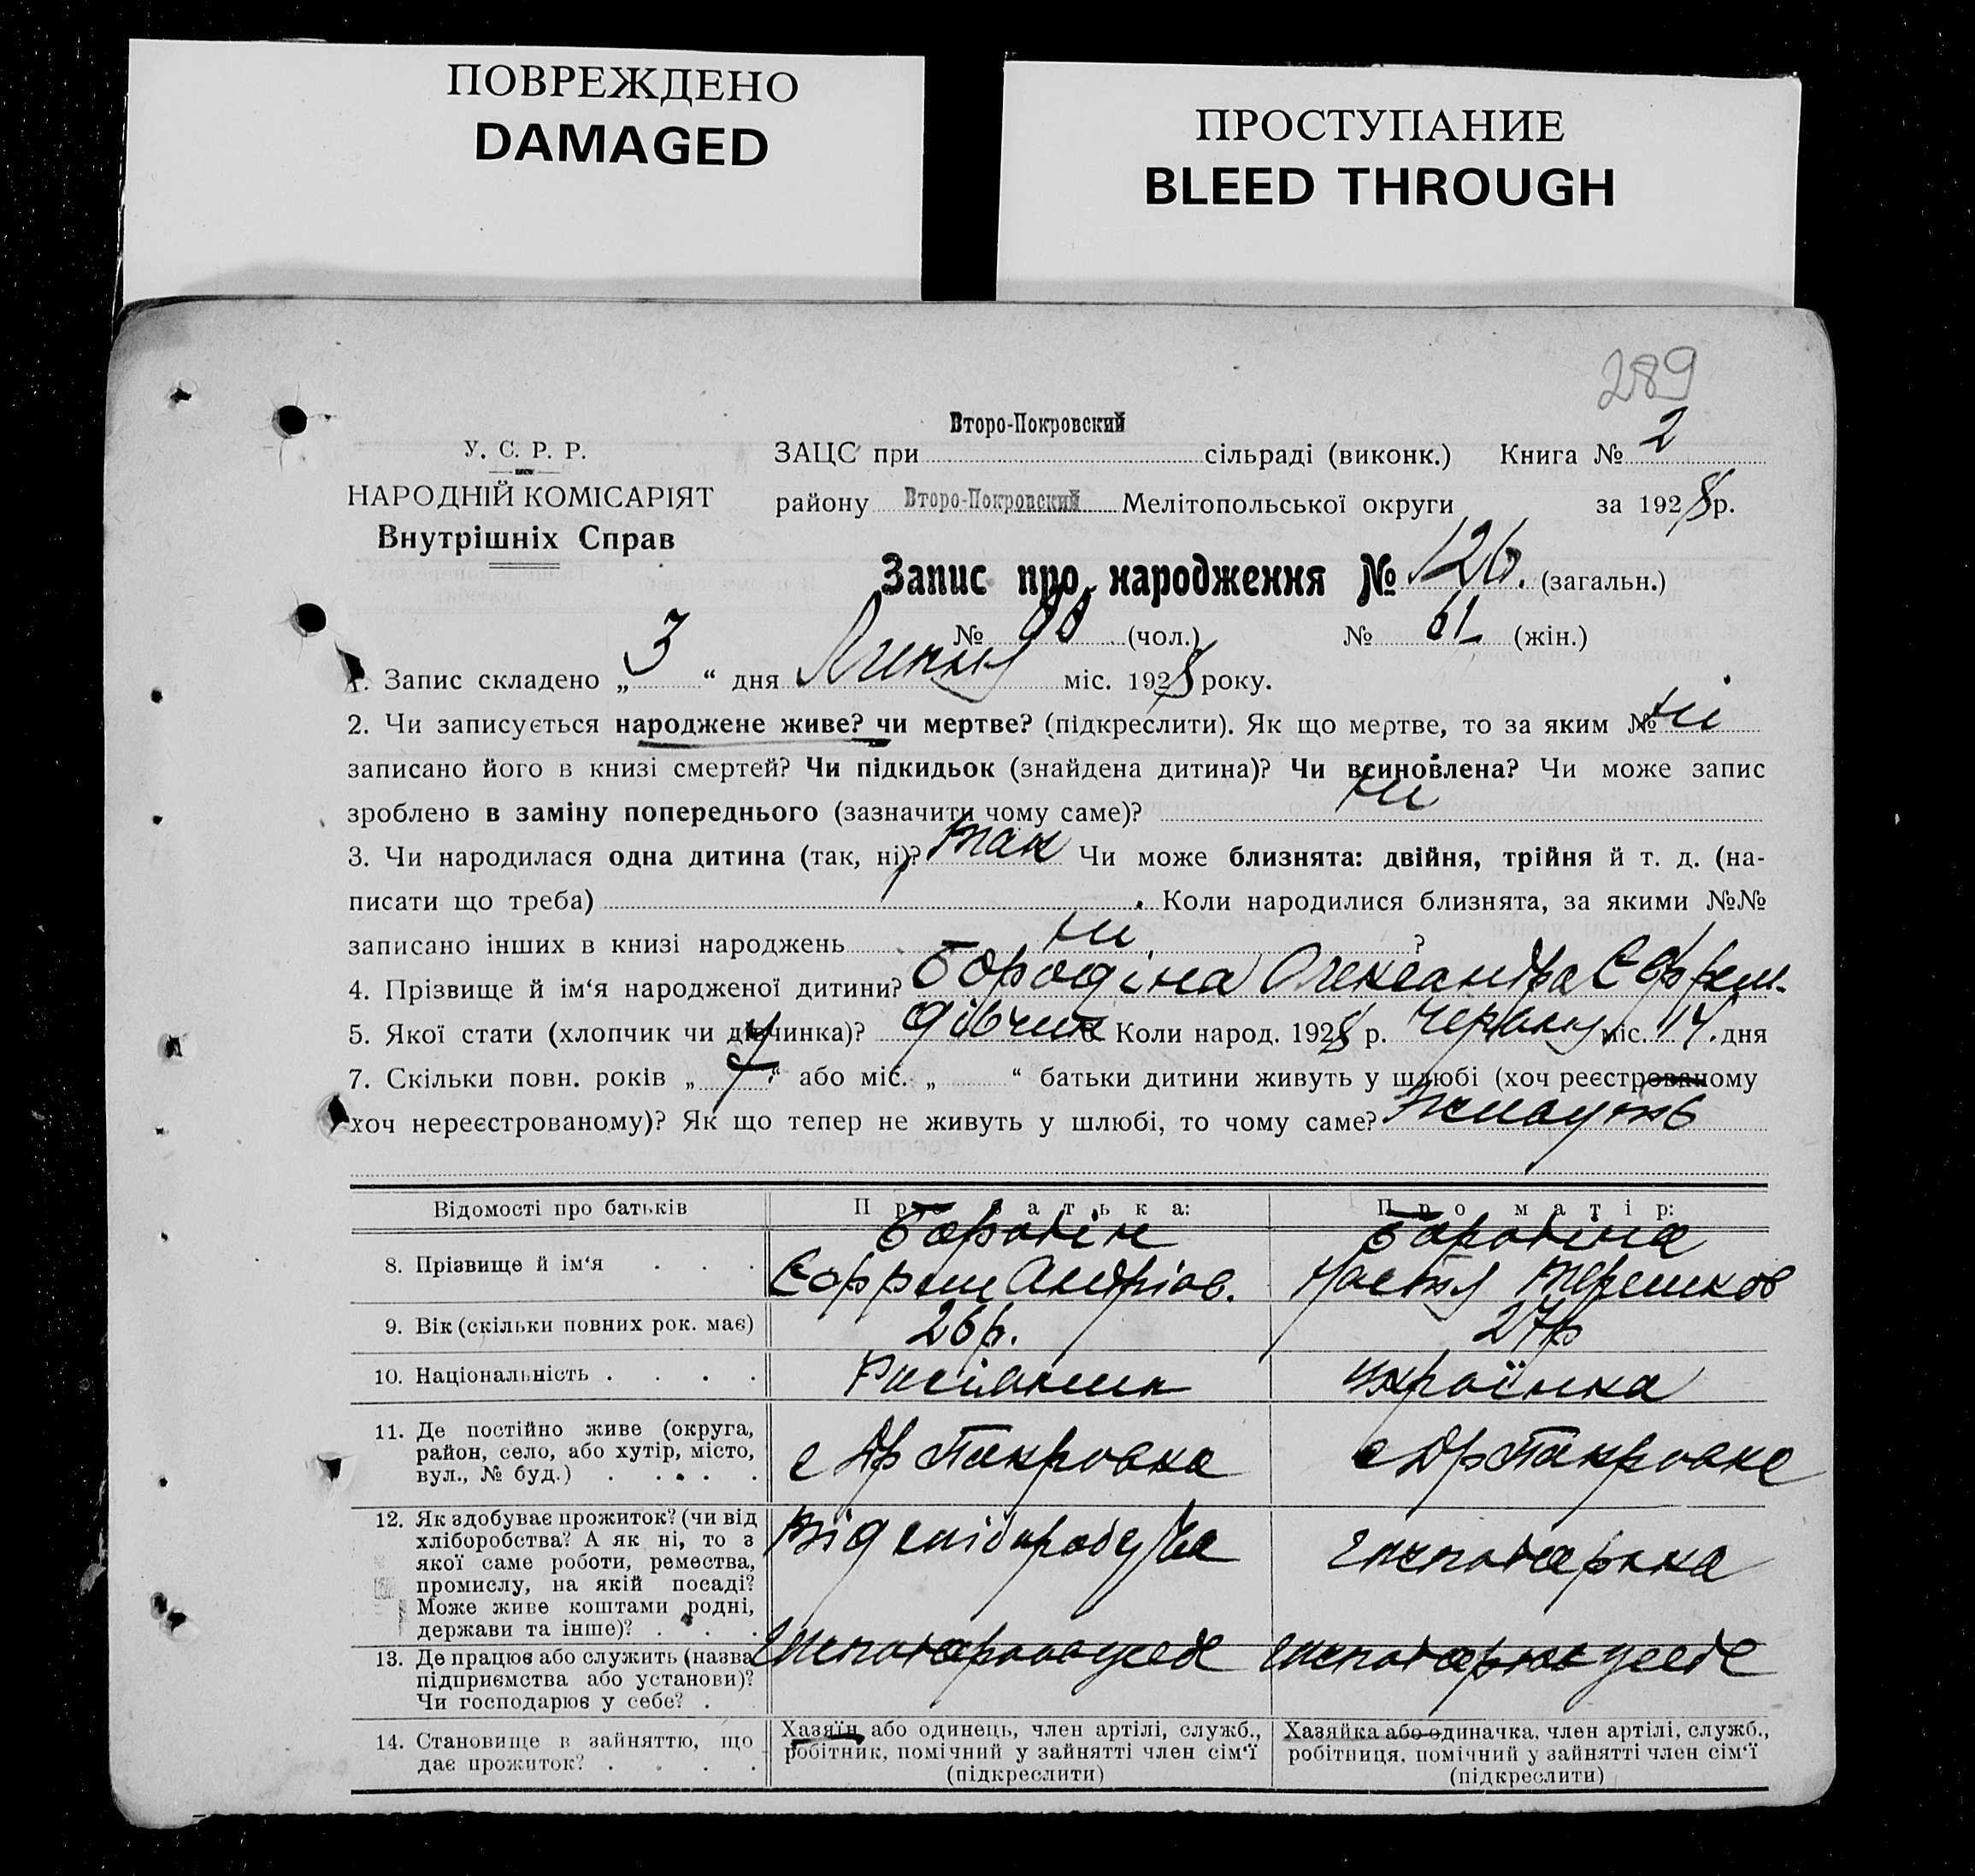 ПОВРЕЖДЕНО
DAMAGED
ПРОСТУПАНИЕ
BLEED THROUGH
289
Второ-Покровский
У. С. Р. Р.
ЗАЦС при сільраді (виконк.) Книга № 2
НАРОДНІЙ КОМІСАРІЯТ
району Второ-Покровский Мелітопольської округи за 1928 р.
Внутрішніх Справ
Запис про народження № 126. (загальн.)
№ (чол.) № 61 (жін.)
1. Запис складено „ 3 “ дня Липня міс. 1928 року.
2. Чи записується народжене живе? чи мертве? (підкреслити). Як що мертве, то за яким № ні
записано його в книзі смертей? Чи підкидьок (знайдена дитина)? Чи всиновлена? Чи може запис
зроблено в заміну попереднього (зазначити чому саме)? ні
3. Чи народилася одна дитина (так, ні)? так Чи може близнята: двійня, трійня й т. д. (на-
писати що треба) . Коли народилися близнята, за якими №№
записано інших в книзі народжень ні ?
4. Прізвище й ім‘я народженої дитини? Бородіна Олександра Єфрем.
5. Якої стати (хлопчик чи дівчинка)? дівчин Коли народ. 1928 р. червня міс. 14. дня
7. Скільки повн. років „ 7 “ або міс. „ “ батьки дитини живуть у шлюбі (хоч реєстрованому
хоч нереєстрованому)? Як що тепер не живуть у шлюбі, то чому саме? живуть
Відомості про батьків
Про батька:
Про матір:
8. Прізвище й ім‘я
Бородін
Єфрем Андріов.
Бородіна
Настя
9. Вік (скільки повних рок. має)
26 р.
27 р
10. Національність
Росіянин
Українка
11. Де постійно живе (округа,
район, село, або хутір, місто,
вул., № буд.)
с Др Покровка
с Др Покровке
12. Як здобуває прожиток? (чи від
хліборобства? А як ні, то з
якої саме роботи, ремества,
промислу, на якій посаді?
Може живе коштами родні,
держави та інше)?
Від
господарка
13. Де працює або служить (назва
підприємства або установи)?
Чи господарює у себе?
господарює у себе
господарює у себе
14. Становище в зайняттю, що
дає прожиток?
Хазяїн або одинець, член артілі, служб.,
робітник, помічний у зайнятті член сім‘ї
(підкреслити)
Хазяйка або одиначка, член артілі, служб.,
робітниця, помічний у зайнятті член сім‘ї
(підкреслити)